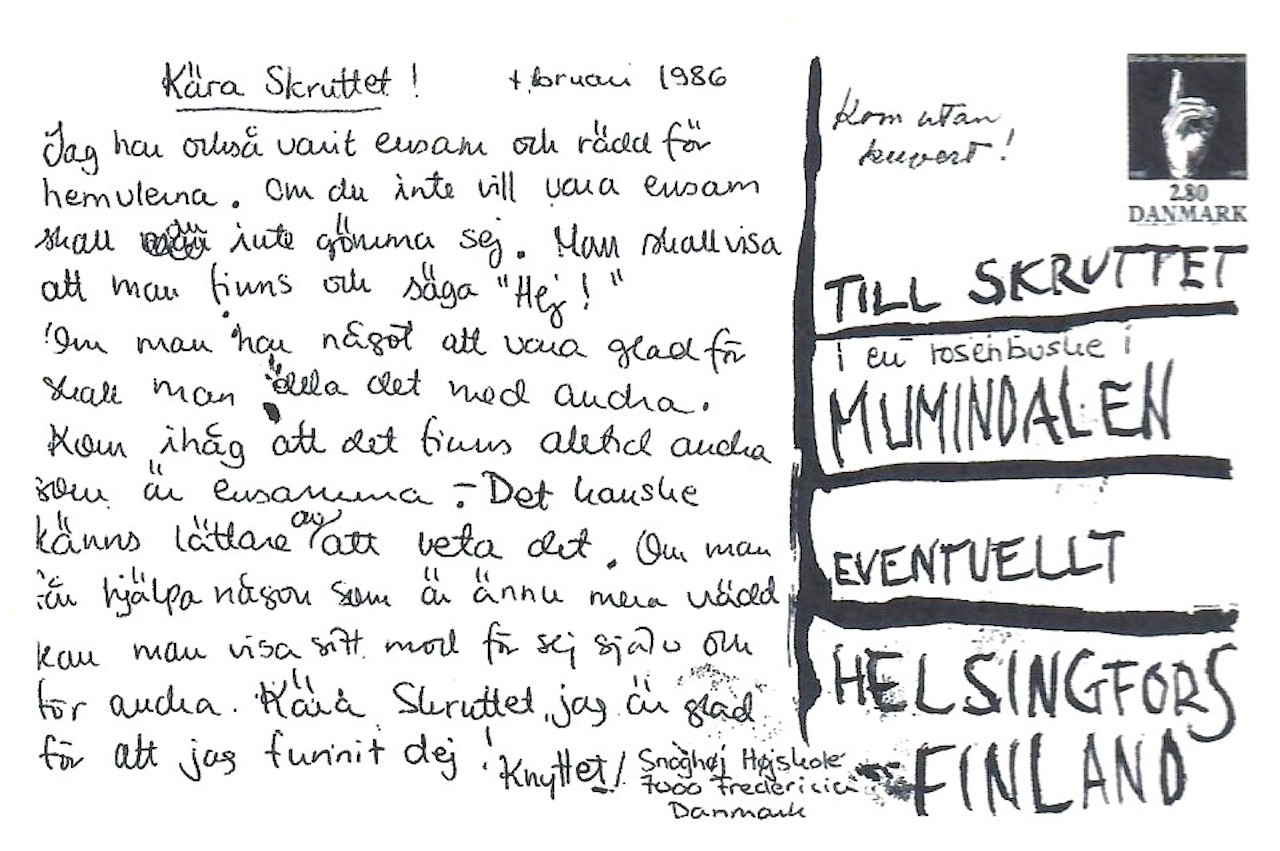 Kära Skruttet! februari 1986
Jag har också varit ensam och rädd för
hemulerna. Om du inte vill vara ensam
skall du inte gömma sej. Man skall visa
att man finns och säga "Hej!"
Om man har något att vara glad för
skall man dela det med andra.
Kom ihåg att det finns alltid andra
som är ensamma - Det kanske
känns lättare av att veta det. Om man
får hjälpa någon som är ännu mera rädd
kan man visa sitt mod för sej själv och
för andra. Kära Skruttet, jag är glad
för att jag funnit dej! Knyttet!
Snoghøj Højskole
7000 Fredericia
Danmark
Kom utan
kuvert!
2.80
DANMARK
TILL SKRUTTET
i en rosenbuske i
MUMINDALEN
EVENTUELLT
HELSINGFORS
FINLAND